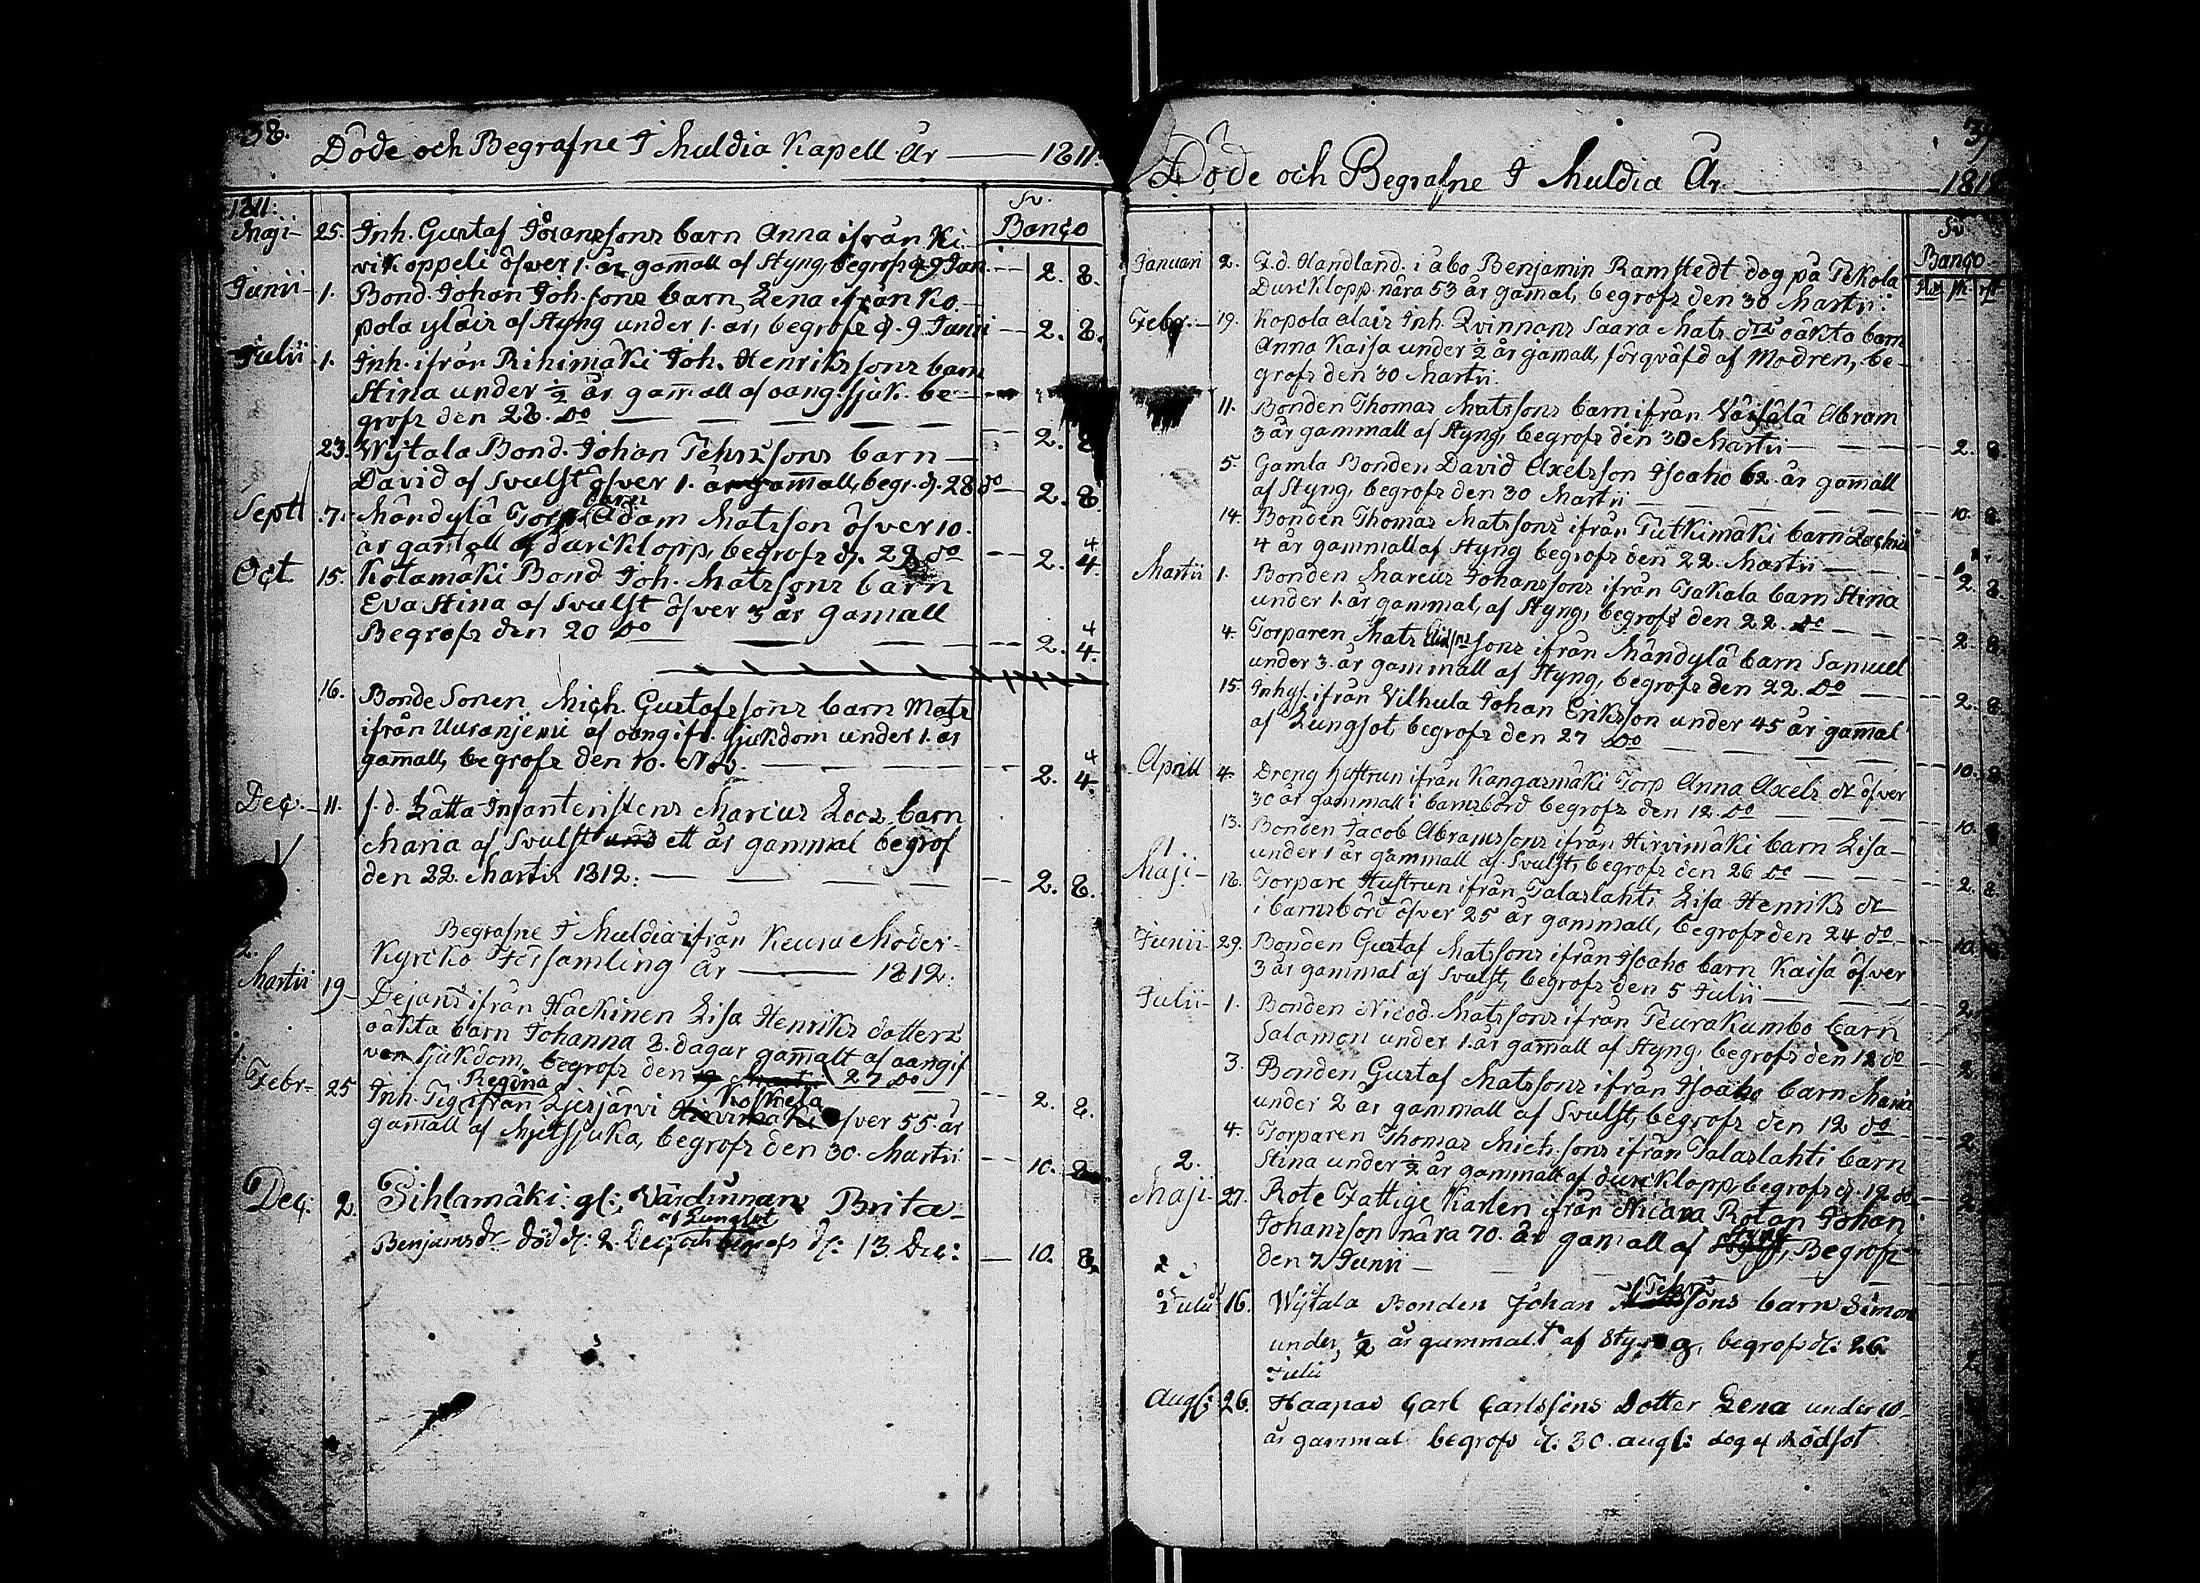 38.
Döde och Begrafne I Muldia Kapell År — 1811.
Sv.
Banço
1811:
Maji 25. Inh. Gustaf Göranssons barn Anna ifrån Ki-
vikoppeli öfver 1. år gamall af Styng, begrofs 9 Jun. — 2. 8.
Junii 1. Bond. Johan Joh. sons barn Lena ifrån Ko-
pola yläis af Styng under 1. år, begrofs d. 9 Junii — 2. 8.
Julii 1. Inh. ifrån Rihimäki Joh. Henrikssons barn
Stina under ½ år gamall af oang. sjuk. be-
grofs den 28. do — 2. 8
23. Wijtala Bond. Johan Jehrssons barn
David af Svulst öfver 1. år gamall, begr. d. 28 do — 2. 8.
Septt 7. Mändylä Torp. barn Adam Matsson öfver 10.
år gamall af durcklopp, begrofs d. 22 do — 2. 4.
Oct. 15. Kotamäki Bond Joh. Matssons barn
Eva Stina af Svulst öfver 3 år gamall
Begrofs den 20 do — 2. 4.
16. Bonde Sonen Mich. Gustafssons barn Mats
ifrån Uusanjemi af oangifv. sjukdom under 1. år
gamall, begrofs den 10. Nov. — 2. 4.
Deç. 11. f.d. Lätta Infanteristens Marcus Loos barn
Maria af Svulst und ett år gammal begrof
den 22. Martii 1812: — 2. 8.
Begrafne I Muldia ifrån Keuru Moder-
Kyrcko Församling År — 1812.
2.
Martii 19 Dejans ifrån Häckinen Lisa Henriks dotters
oäkta barn Johanna 3. dagar gamalt af oangif
ven sjukdom, begrofs den 27 do — 2. 8.
1.
Febr. 25 Inh. Tig. Regina ifrån Liesjärvi Koskela öfver 55. år
gamall af Mjetsjuka, begrofs den 30. Martii — 10. 8
Deç: 2. Sihlamäki: gl: Värdinnan Brita
Benjamsdr död d: 2. Deç, af Lungsot och begrofs d: 13. Dec: — 10. 8.
39
Döde och Begrafne I Muldia År — 1812
Sv
Banço
Januari 2. F.d. Handland. i åbo Benjamin Ramstedt dog på Pekola
Durcklopp nära 53 år gamal, begrofs den 30 Martii.
Febr. 19. Kopola alais Inh. Qvinnans Saara Mats drs oäkta barn
Anna Kaisa under ½ år gamall, förqväfd af Modren, be-
grofs den 30 Martii.
11. Bonden Thomas Matssons barn ifrån Väisälä Abram
3 år gammall af Styng, begrofs den 30 Martii — 2. 8.
5. Gamla Bonden David Axelsson Isoaho 62. år gamall
af Styng, begrofs den 30 Martii — 10. 8.
14. Bonden Thomas Matssons ifrån Tutkimäki barn
4 år gammall af Styng begrofs den 22. Martii —
Martii 1. Bonden Marcus Johanssons ifrån Jakala barn Stina — 2. 8.
under 1. år gammal, af Styng, begrofs den 22. do —
4. Torparen Mats sons ifrån Mändylä barn Samuel — 2. 8.
under 3. år gammall af Styng, begrofs den 22. do —
15. Inhys. ifrån Vilhula Johan Eriksson under 45 år gamal — 2. 8.
af Lungsot, begrofs den 27 do —
Aprill 4. Dreng hustrun ifrån Kangasmäki Torp Anna Axels dr öfver — 10. 8.
30 år gammall i barnsbörd begrofs den 12. do —
13. Bonden Jacob Abramssons ifrån Hirvimäki barn Lisa — 10.
under 1 år gammall af Svulst, begrofs den 26 do —
Maji 18. Torpare Hustrun ifrån Talaslahti Lisa Henriks dr — 2. 8.
i barnsbörd öfver 25 år gammall, begrofs den 24 do —
Junii 29. Bonden Gustaf Matssons ifrån Isoaho barn Kaisa öfver — 10.
3 år gammal af Svulst, begrofs den 5 Julii —
Julii 1. Bonden Nicod. Matssons ifrån Teurakumbo barn — 2.
Salamon under 1. år gamall af Styng, begrofs den 12 do
3. Bonden Gustaf Matssons ifrån Isoaho barn Maria — 2.
under 2 år gammall af Svulst, begrofs den 12 do
4. Torparen Thomas Mich. sons ifrån Talaslahti barn — 2
Stina under ½ år gammall af durcklopp, begrofs d. 12 do
2.
Maji 27. Rote Fattige Karlen ifrån Rotan Johan — 2
Johansson nära 70. år gamall af, Begrofs
den 7 Junii —
2
Julii 16. Wijtala Bonden Johan Jehrssons barn Simon
under ½ år gammalt af Styng, begrofs d: 26.
Julii — 2
Augl: 26. Haapas Carl Carlssons Dotter Lena under 10
år gammal begrofs d: 30. augl: dog af Rödsot